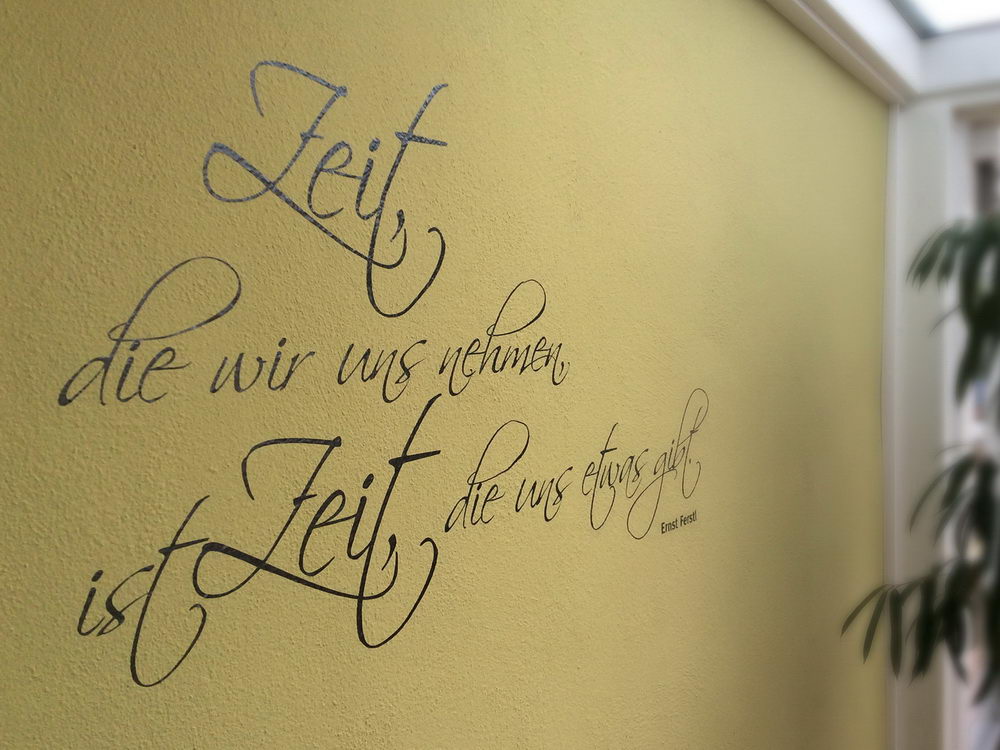 Zeit,
die wir uns nehmen,
ist Zeit, die uns etwas gibt.
Ernst Ferstl